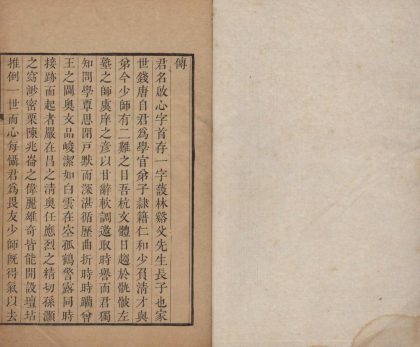 傳
君名啟心字首存一字蘐林谿父先生長子也家
世錢唐自君為學官弟子隸籍仁和少負清才與
弟今少師有二難之目吾杭文體日趨於骫骳左
塾之師庚庠之彥以甘辭軟調邀取時譽而君獨
知問學覃思閉戸默而深湛循歷曲折時時躪曾
王之闖奧文品峻潔如白雲在空孤鶴警露同時
接跡而起者嚴在昌之清奧任應烈之精切孫灝
之窈渺密栗陳兆崙之偉麗雄奇皆能開設壇坫
推倒一世而心每懾君為畏友少師旣得氣以去